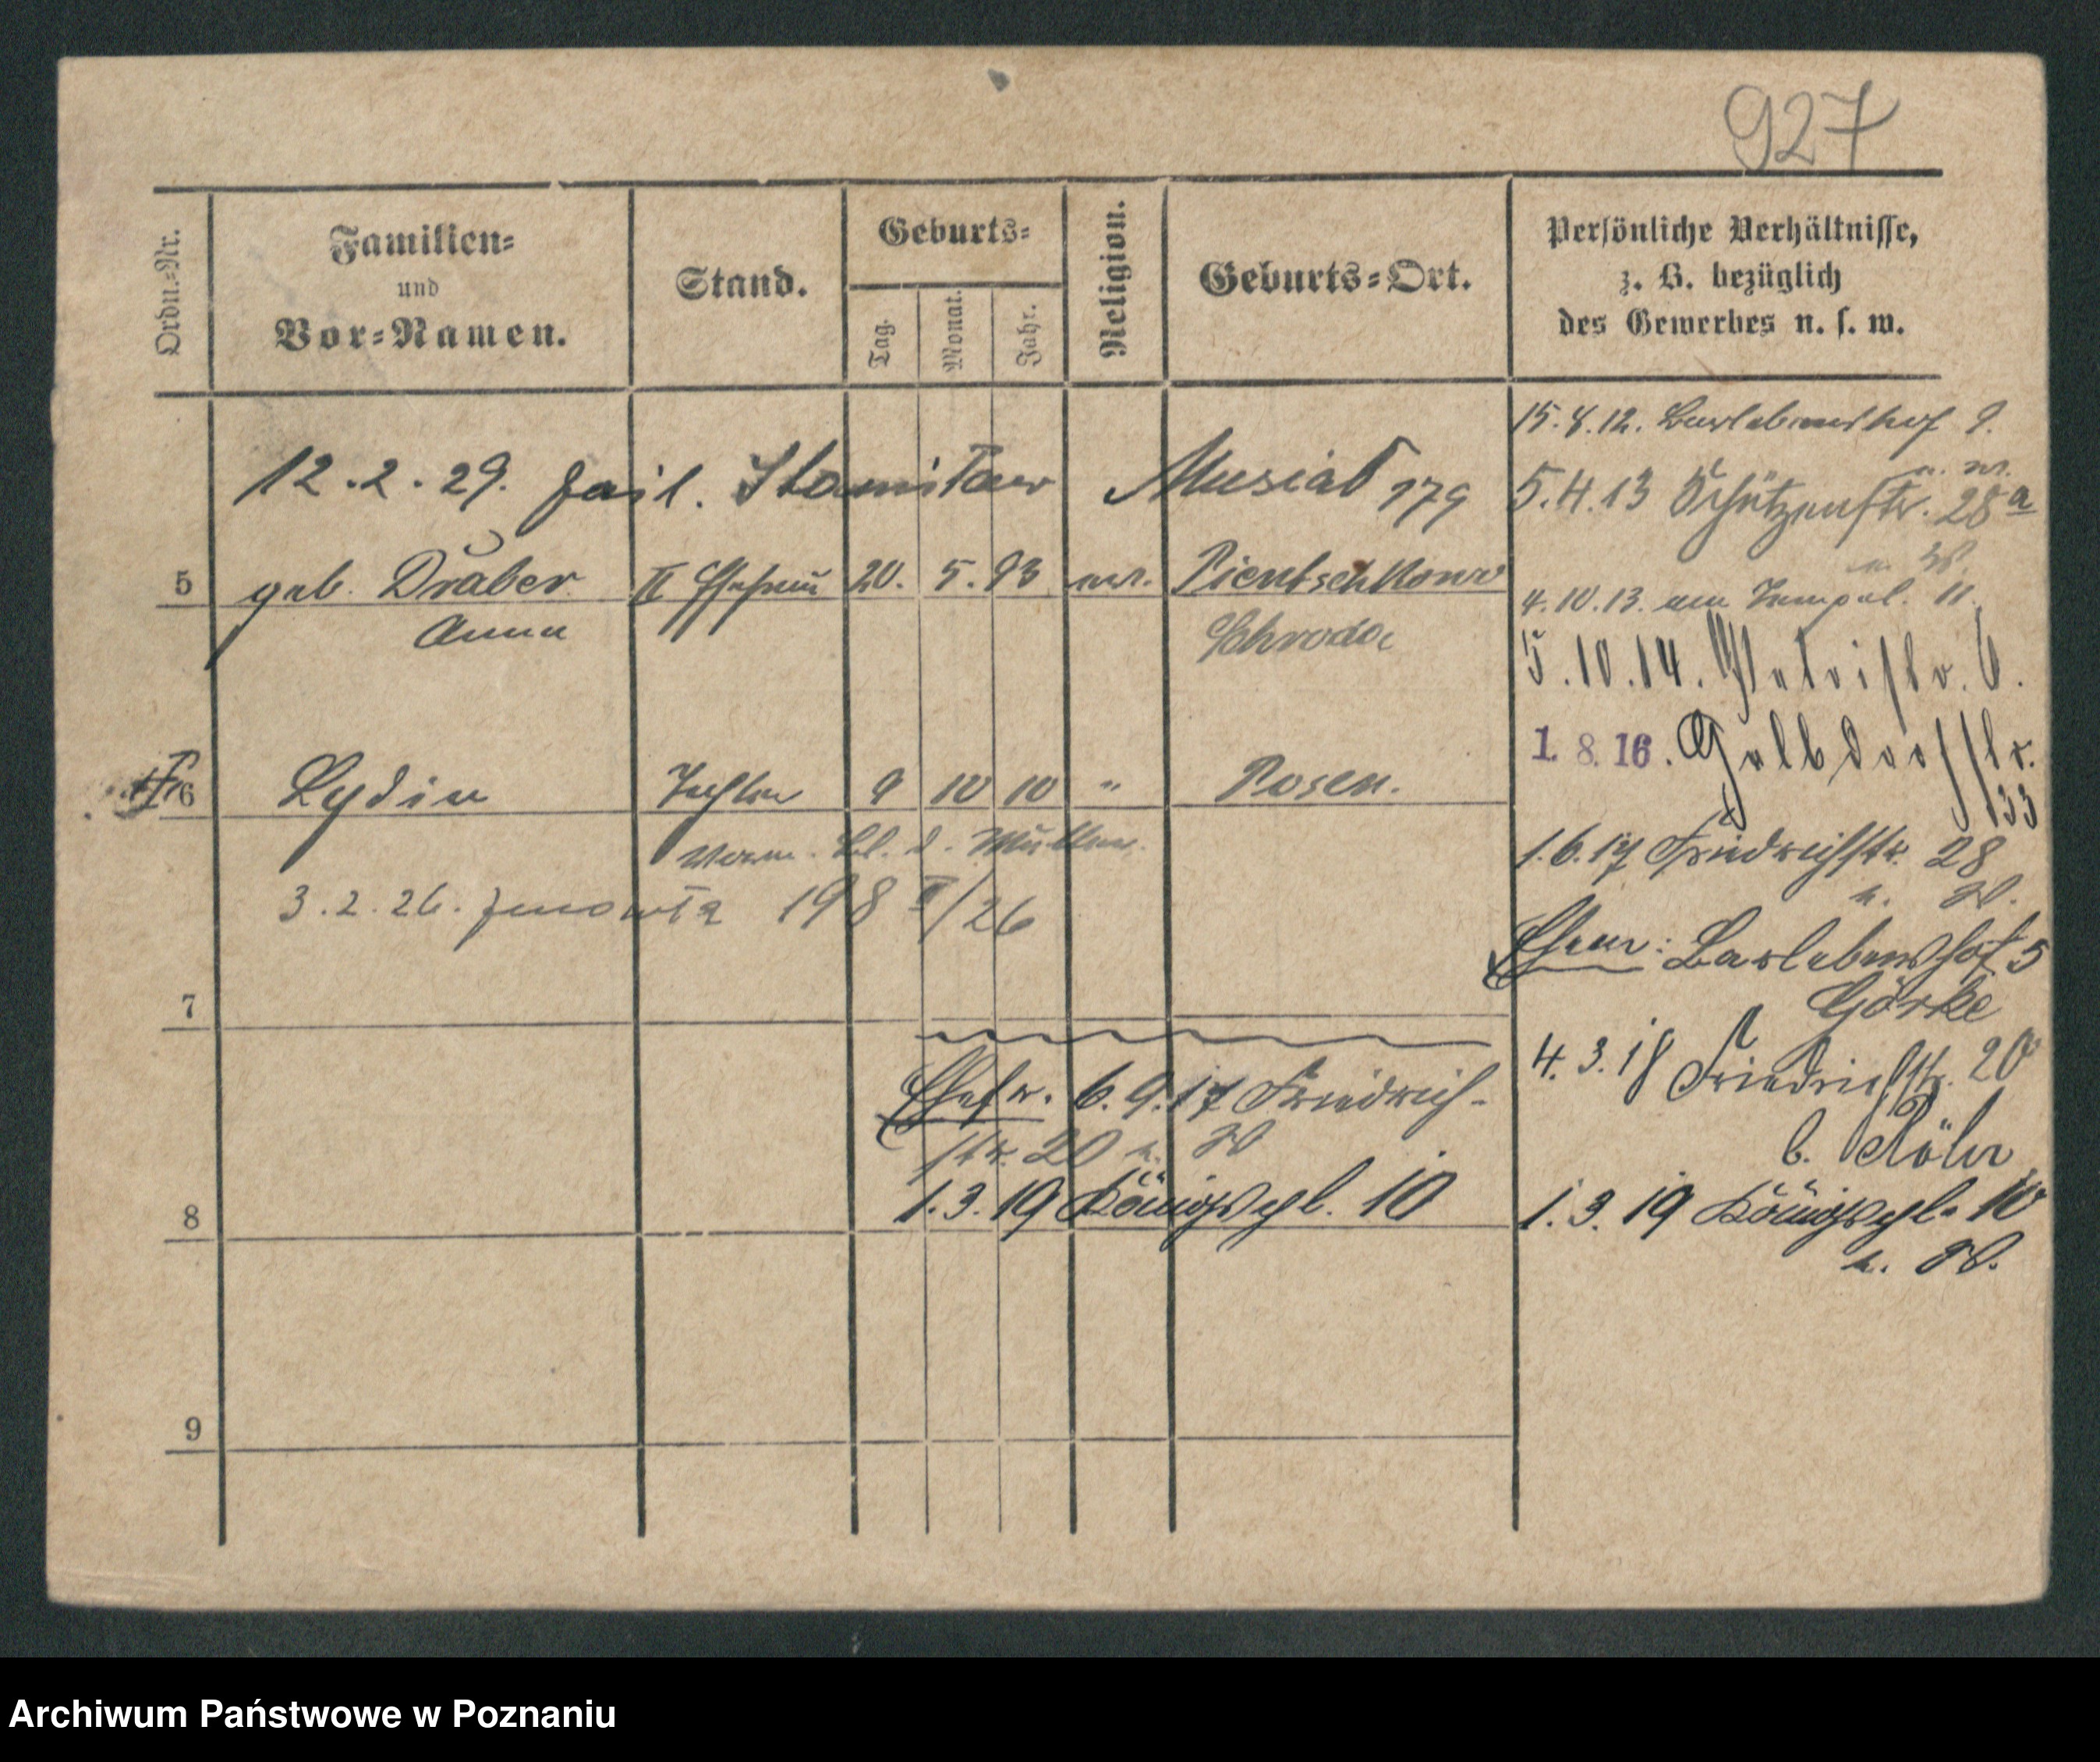 927
Ordn.-Nr.
Familien-
und
Vor-Namen.
Stand.
Geburts-
Tag.
Monat.
Jahr.
Religion.
Geburts-Ort.
Persönliche Verhältnisse,
z. B. bezüglich
des Gewerbes u. s. w.
15.8.12. Barlebenshof 9.
12.2.29. Stanisław Musiał 179
u. W.
5.4.13 Schützenstr. 28 a
5 geb. Draber II Ehefrau 20. 5. 93 Pientschkowo
Anna Schroda
u. W.
4.10.13. am Tempel. 11.
5.10.14. Petristr. 6.
1.8.16.
33
6 Lydia Tochter 9 10 10 " Posen.
Vorm. Bl. d. Mutter.
1.6.17 Friedrichstr. 28
u. W.
3.2.26. 198 /26
Ehem: Barlebenshof 5
Görke
7
4.3.18 Friedrichstr. 20
b. Röhr
Ehefr. 6.9.17 Friedrich-
str. 20 u. W
8 1.3.19 Königspl. 10
1.3.19 Königspl. 10
u. W.
9
Archiwum Państwowe w Poznaniu